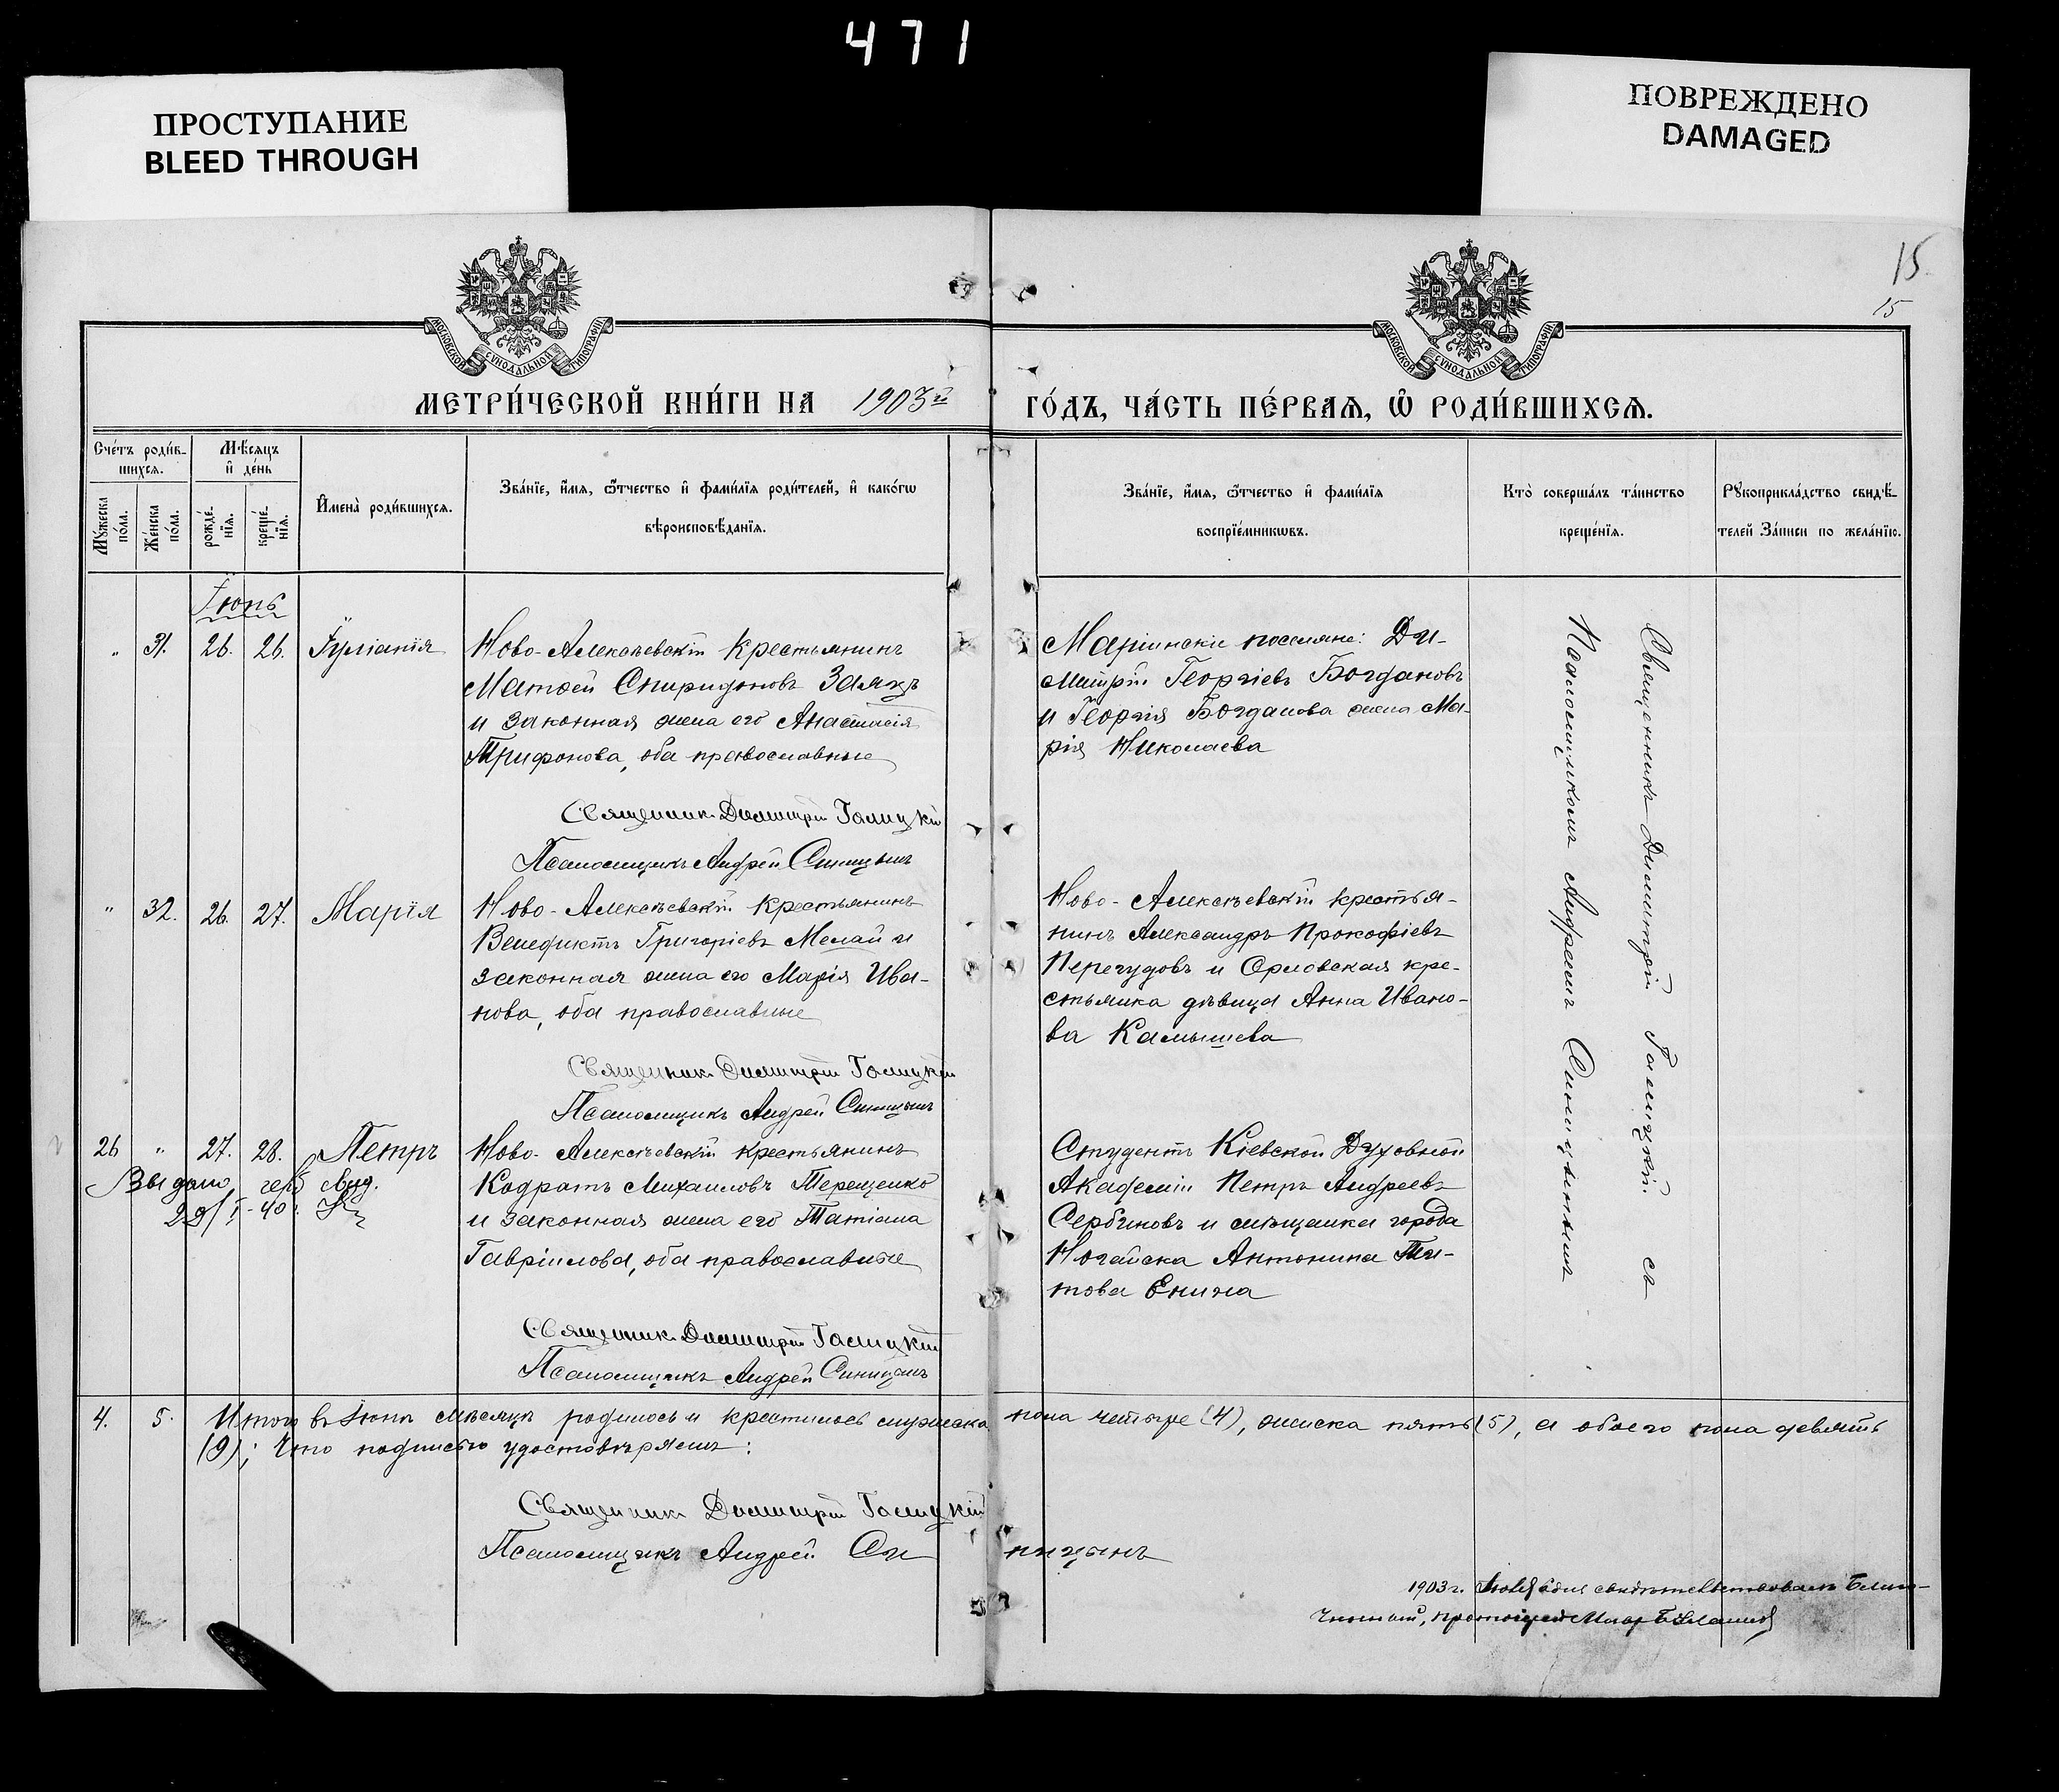 471
ПРОСТУПАНИЕ
BLEED THROUGH
ПОВРЕЖДЕНО
DAMAGED
15
15
МОСКОВСКОЙ СѴНОДАЛЬНОЙ ТИПОГРАФІИ
МОСКОВСКОЙ СѴНОДАЛЬНОЙ ТИПОГРАФІИ
МЕТРИ́ЧЕСКОЙ КНИ́ГИ НА 1903й
ГО́ДЪ, ЧА́СТЬ ПЕ́РВАѦ, Ѡ҆ РОДИ́ВШИХСѦ.
Сче́тъ роди́в-
шихсѧ.
Мѣ́сѧцъ
и҆ де́нь
Мꙋ́жеска
по́ла.
Же́нска
по́ла.
рожде́-
нїѧ.
креще́-
нїѧ.
И҆мена̀ роди́вшихсѧ.
Зва́нїе, и҆́мѧ, ѻ҆́тчество и҆ фамѝлїѧ роди́телей, и҆ како́гѡ
вѣроисповѣ́данїѧ.
Зва́нїе, и҆́мѧ, ѻ҆́тчество и҆ фами́лїѧ
воспрїе́мникѡвъ.
Кто̀ соверша́лъ та́инство
креще́нїѧ.
Рꙋкоприкла́дство свидѣ́-
телей За́писи по жела́нїю.
Іюнь
" 31. 26. 26. Іуліанія
Ново-Алексѣевскій крестьянинъ
Матѳей Спиридоновъ Заяцъ
и законная жена его Анастасія
Трифонова, оба православные
Священник Димитрій Галицкій
Псаломщикъ Андрей Синицынъ
Маріински поселяне: Ди-
митрій Георгіевъ Богдановъ
и Георгія Богданова жена Ма-
рія Николаева
" 32. 26. 27. Марія
Ново-Алексѣевскій крестьянинъ
Венедиктъ Григоріевъ Мелай и
законная жена его Марія Ива-
нова, оба православные
Священник Димитрій Галицкій
Псаломщикъ Андрей Синицынъ
Ново-Алексѣевскій крестья-
нинъ Александръ Прокофіевъ
Перегудовъ и Орловская кре-
стьянка дѣвица Анна Ивано-
ва Камышева
26 " 27. 28. Петръ
Выдано
Ново-Алексѣевскій крестьянинъ
Кодратъ Михаиловъ Терещенко
и законная жена его Татіана
Гавріилова, оба православные
Священник Димитрій Галицкій
Псаломщикъ Андрей Синицынъ
Студентъ Кіевской Духовной
Академіи Петръ Андреевъ
Сербиновъ и мѣщанка города
Ногайска Антонина Ти-
това Енина
Священникъ Димитрій Галицкій съ
Псаломщикомъ Андреемъ Синицынымъ
4. 5. Итого въ Іюнѣ мѣсяцѣ родилось и крестилось мужеска пола четыре (4), женска пять (5), а обоего пола девять
(9); Что подписью удостовѣряемъ:
Священник Димитрій Галицкій
Псаломщикъ Андрей Синицынъ
1903 г. свидѣтельствовалъ Благо-
чинный, протоіерей